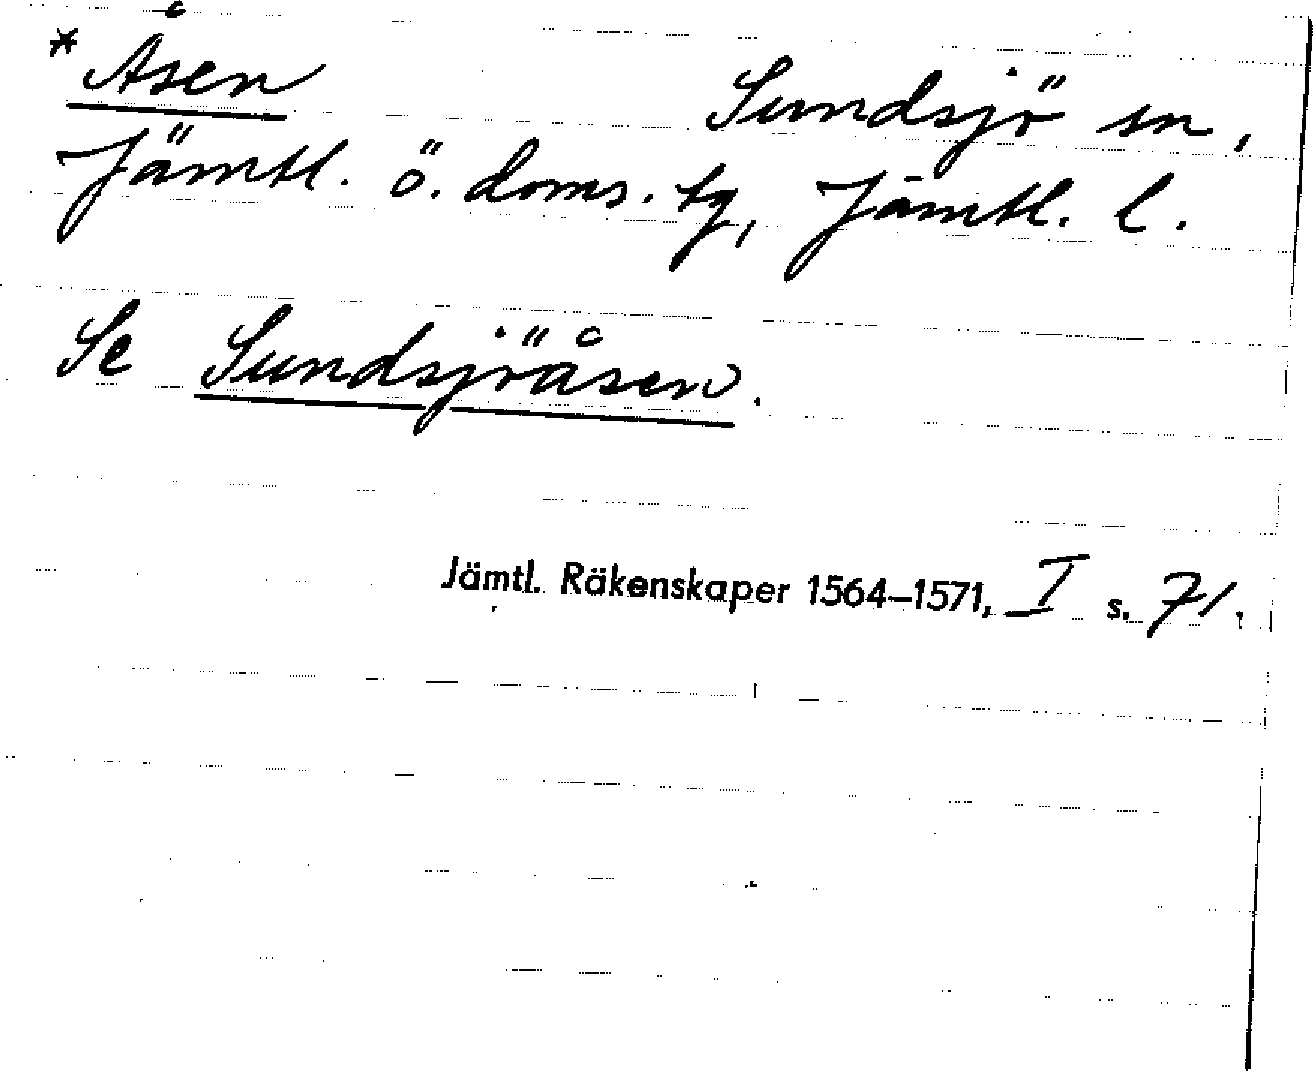 * Åsen Sundsjö sn,
Jämtl. ö. doms. tg, Jämtl. l.
Se Sundsjöåsen.
Jämtl. Räkenskaper 1564–1571, I s. 71.